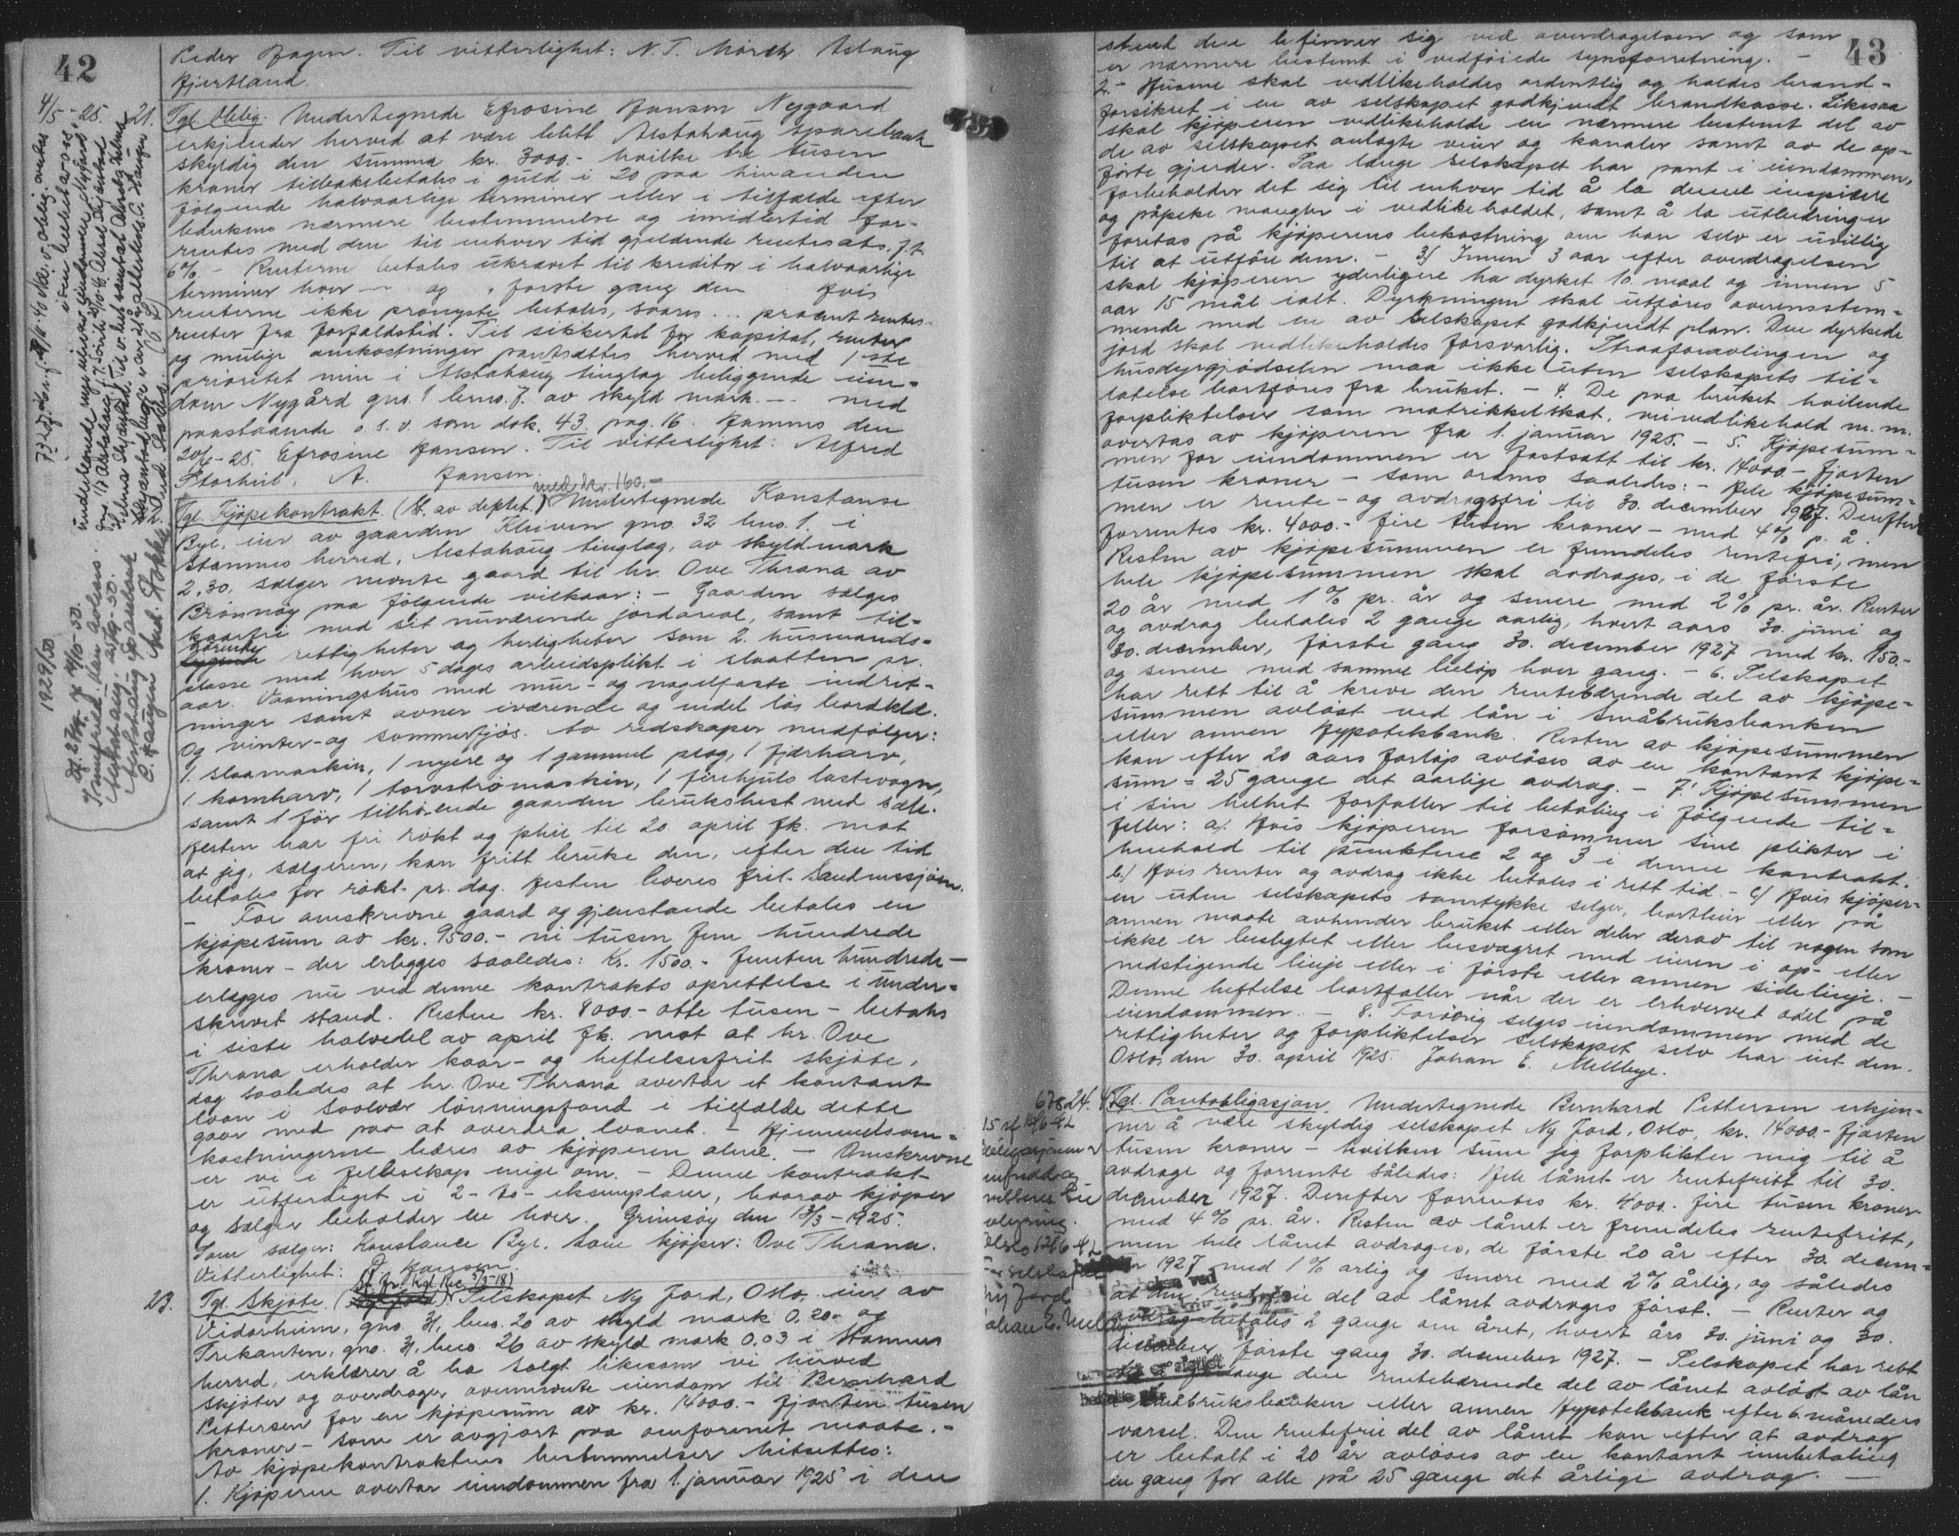 42
Peder Hagen. Til vitterlighet: N. T. Mørch. Aslaug
Hjertland.
4/5-25.
21. Tgl. Oblig. Undertegnede Efrosine Jansen Nygaard
erkjender herved at være blitt Alstahaug sparebank
skyldig den summa kr. 3000.- hvilke tre tusen
kroner tilbakebetales i guld i 20 paa hinanden
følgende halvaarlige terminer eller i tilfælde efter
bankens nærmere bestemmelse og imidlertid for-
rentes med den til enhver tid gjeldende rentesats, f.t.
6% - Renterne betales ukrævet til kreditor i halvaarlige
terminer hver — og . første gang den Hvis
renterne ikke promgste betales, svares ... procent rentes
renter fra forfaldstid. Til sikkerhet for kapital, renter
og mulige omkostninger pantsættes herved med 1ste
prioritet min i Alstahaug tinglag beliggende eien-
dom Nygård gno. 1 bno. 7. av skyld mark. — med
paastaaende o.s.v. som dok. 43 pag. 16. Hamnes den
20/6-25. Efrosine Jansen. Til vitterlighet: Alfred
Storheil. A. Jansen.
med kr. 160.-
Tgl. Kjøpekontrakt. (St. av deptet.) Undertegnede Konstanse
Byl, eier av gaarden Kleiven gno. 32 bno. 1. i
Stamnes herred, Alstahaug tinglag, av skyldmark
2,30, sælger nevnte gaard til hr. Ove Thrana av
Brønnøy paa følgende vilkaar: - Gaarden sælges
kaarfri med sit nuværende jordareal, samt til-
hørende rettigheter og herligheter som 2 husmands-
plasse med hver 5 dages arbeidsplikt i slaatten pr.
aar. Vaaningshus med mur- og nagelfaste indret-
ninger samt ovner iværende og videl løs bordkld.
Og vinter- og sommerfjøs. Av redskaper medfølger:
1 slaamaskin, 1 nyere og 1 gammel plog, 1 fjærharv,
1 kornharv, 1 torvstrømaskin, 1 firehjuls lastevogn,
samt 1 for tilhørende gaarden brukshest med sæle.
Hesten har fri røkt og pleie til 20 april fk. mot
at jeg, sælgeren, kan fritt bruke den, efter den tid
betales for røkt pr. dag. Hesten leveres frit Sandnessjøen.
- For omskrevne gaard og gjenstande betales en
kjøpesum av kr. 9500.- ni tusen fem hundrede
kroner - der erlegges saaledes: Kr. 1500.- femten hundrede -
erlægges nu ved denne kontrakts oprettelse i under-
skrivet stand. Resten kr. 8000 - otte tusen - betales
i siste halvdel av april fk. mot at hr. Ove
Thrana erholder kaar- og heftelsesfrit skjøte,
dog saaledes at hr. Ove Thrana overtar et kontant
laan i Saalvær lønningsfond i tilfælde dette
gaar med paa at overdra laanet. - Hjemmelsom-
kostningerne bæres av kjøperen alene. - Omskrevne
er vi i fellesskap enige om. - Denne kontrakt
er utferdiget i 2 - to - eksemplarer, hvorav kjøper
og sælger beholder en hver. Grimsøy den 13/3-1925.
Som sælger: Konstance Byl. Som kjøper: Ove Thrana.
Vitterlighet: J. Hansen.
St. fr. Kgl. Res. 3/5-18)
23. Tgl. Skjøte. Selskapet Ny Jord, Oslo, eier av
Vidarheim, gno. 31, bno. 20 av skyld mark 0,20. og
Trekanten, gno. 31, bno 26 av skyld mark 0.03 i Stamnes
herred, erklærer å ha solgt likesom vi herved
skjøter og overdrager ovennevnte eiendom til Bernhard
Pettersen for en kjøpesum av kr. 14000.- fjorten tusen
kroner - som er avgjort paa omforenet maate. -
Av kjøpekontraktens bestemmelser hitsettes:
1. Kjøperen overtar eiendommen fra 1. januar 1925 i den
43
stand den befinner sig ved overdragelsen og som
er nærmere bestemt i vedføiede synsforretning. -
2. - Husene skal vedlikeholdes ordentlig og holdes brand-
forsikret i en av selskapet godkjendt brandkasse. Likesaa
skal kjøperen vedlikeholde en nærmere bestemt del av
de av selskapet anlagte veier og kanaler samt av de op-
førte gjerder. Saa længe selskapet har pant i eiendommen,
forbeholder det sig til enhver tid å la denne inspisere
og påpeke mangler i vedlikeholdet, samt å la utbedringer
foretas på kjøperens bekostning om han selv er uvillig
til at utføre dem. - 3) Innen 3 aar efter overdragelsen
skal kjøperen yderligere ha dyrket 10 maal og innen 5
aar 15 mål ialt. Dyrkningen skal utføres overensstem-
mende med en av selskapet godkjendt plan. Den dyrkede
jord skal vedlikeholdes forsvarlig. Straaforavlingen og
husdyrgjødselen maa ikke uten selskapets til-
latelse bortføres fra bruket. - 4. De paa bruket hvilende
forpliktelser som matrikkelskat, veivedlikehold m. m.
overtas av kjøperen fra 1. januar 1925. - 5. Kjøpesum-
men for eiendommen er fastsatt til kr. 14000 - fjorten
tusen kroner - som ordnes saaledes: - Hele kjøpesum-
men er rente- og avdragsfri til 30. december 1927. Derefter
forrentes kr. 4000.- fire tusen kroner - med 4% p. å.
Resten av kjøpesummen er fremdeles rentefri, men
hele kjøpesummen skal avdrages, i de første
20 år med 1% pr. år og senere med 2% pr. år. Renter
og avdrag betales 2 gange aarlig, hvert aars 30. juni og
30. december, første gang 30. december 1927 med kr. 150.-
og senere med samme beløp hver gang. - 6. Selskapet
har rett til å kreve den rentebærende del av kjøpe-
summen avløst ved lån i Småbruksbanken
eller annen Hypotekbank. Resten av kjøpesummen
kan efter 20 aars forløp avløses av en kontant kjøpe-
sum = 25 gange det aarlige avdrag. - 7. Kjøpesummen
i sin helhet forfaller til betaling i følgende til-
feller: a). Hvis kjøperen forsømmer sine plikter i
henhold til punktene 2 og 3 i denne kontrakt.
b.) Hvis renter og avdrag ikke betales i rett tid. - c) Hvis kjøper-
en uten selskapets samtykke selger, bortleier eller på
annen maate avhender bruket eller deler derav til nogen som
ikke er beslegtet eller besvogret med eieren i op- eller
nedstigende linje eller i første eller annen sidelinje. -
Denne heftelse bortfaller når der er erhvervet odel på
eiendommen. - 8. Forøvrig selges eiendommen med de
rettigheter og forpliktelser selskapet selv har eiet den.
Oslo, den 30. april 1925. Johan E. Mellbye.
24. Tgl. Pantobligasjon. Undertegnede Bernhard Pettersen erkjen-
ner å være skyldig selskapet Ny Jord, Oslo, kr. 14000.- fjorten
tusen kroner - hvilken sum jeg forplikter mig til å
avdrage og forrente således: Hele lånet er rentefritt til 30.
december 1927. Derefter forrentes kr. 4000. fire tusen kroner -
med 4% pr. år. Resten av lånet er fremdeles rentefritt,
men hele lånet avdrages, de første 20 år efter 30. decem-
ber 1927 med 1% årlig og senere med 2% årlig, og således
at den rentefrie del av lånet avdrages først. - Renter og
avdrag betales 2 gange om året, hvert års 30. juni og 30.
december, første gang 30. december 1927. - Selskapet har rett
den rentebærende del av lånet avløst av lån
Småbruksbanken eller annen Hypotekbank efter 6 måneders
varsel. Den rentefrie del av lånet kan efter at avdrag
er betalt i 20 år avløses av en kontant innbetaling
en gang for alle på 25 gange det årlige avdrag. —